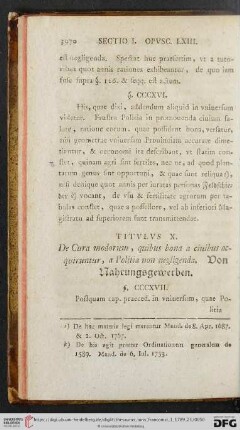 SECTIO I. OPVSC. LXIII.
est negligenda. Spectat huc praesertim, vt a tuto-
ribus quot annis rationes exhibeantur, de quo iam
supra §. 116. & seqq. est actum.
§. CCCXVI.
His, quae dixi, addendum aliquid in vniuersum
videtur. Frustra Politia in promouenda ciuium sa-
lute, ratione eorum, quae possident bona, versatur,
nisi geometrae vniuersum Territorium accurate
tiantur, & oeconomi ita describant, vt statim con-
stet, quinam agri sint fertiles, nec ne, ad quod plan-
tarum genus sint opportuni, & quae sunt reliqua
nisi denique quot annis per iuratos personas
vocant, de vsu & fertilitate agrorum per ta-
bulas constet, quae a possessore, vel ab inferiori Ma-
gistratu ad superiorem sunt transmittendae.
TITVLVS X.
De Cura modorum, quibus bona a ciuibus ac-
quiruntur, a Politia non negligenda. Von
Nahrungsgewerben.
§. CCCXVII.
Postquam cap. praeced. in vniuersum, quae Po-
litia
De hac materia legi merentur Mand. de 8. Apr. 1687.
& 2. Oct. 1767.
De his egit primum Ordinationem generalem de
1589. Mand. de 6. Iul. 1733.
DFG